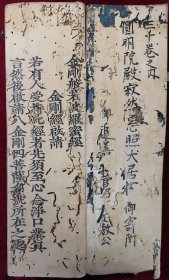 千巻之内
圓明院殿寂然慧照大居士 御寄附
金剛般若波羅蜜經
金剛經啟請
若有人受持經者先須至心念淨口業真
言然後啟請八金剛四菩薩名號所在之處